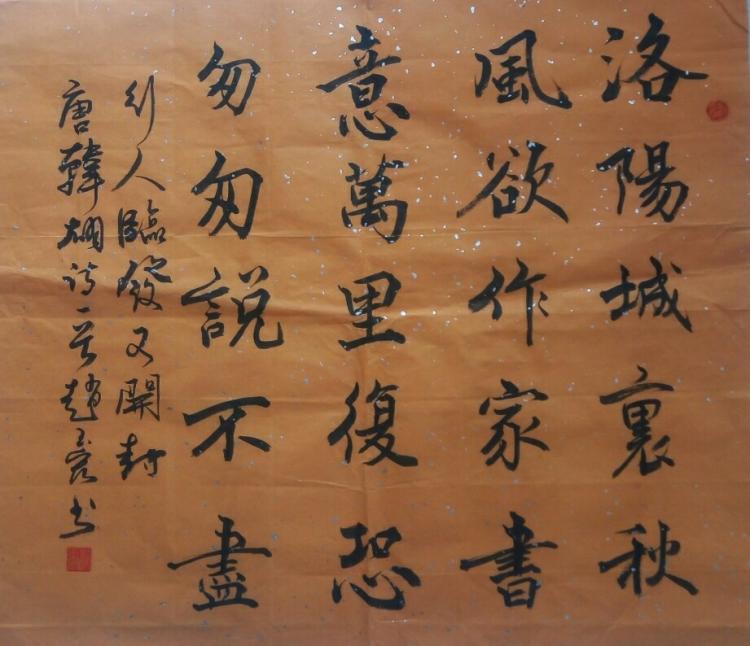 洛陽城裏秋
風欲作家書
意萬里復恐
匆匆說不盡
行人臨發又開封
唐韓翃诗一首趙书